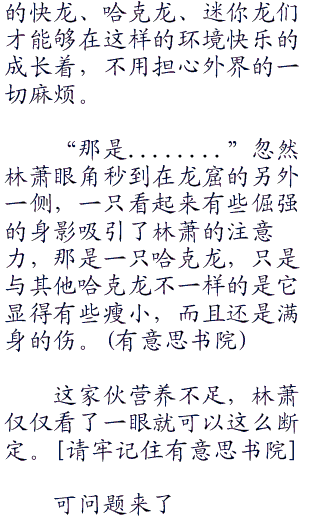 的快龙、哈克龙、迷你龙们
才能够在这样的环境快乐的
成长着，不用担心外界的一
切麻烦。
“那是........”忽然
林萧眼角秒到在龙窟的另外
一侧，一只看起来有些倔强
的身影吸引了林萧的注意
力，那是一只哈克龙，只是
与其他哈克龙不一样的是它
显得有些瘦小，而且还是满
身的伤。(有意思书院)
这家伙营养不足，林萧
仅仅看了一眼就可以这么断
定。[请牢记住有意思书院]
可问题来了